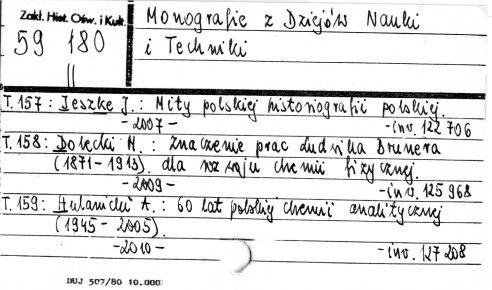 Zakł. Hist. Ośw. i Kult.
59 180
||
Monografie z Dziejów Nauki
i Techniki
T. 157 : Jeszke J. : Mity polskiej historiografii polskiej.
- 2007 - - inv. 122 706
T. 158 : Dolecki M. : Znaczenie prac Ludwika Brunera
(1871 - 1913). dla rozwoju chemii fizycznej.
- 2009 - - inv. 125 968
T. 159 : Hulanicki A. : 60 lat polskiej chemii analitycznej
(1945 - 2005).
- 2010 - - inv. 127 208
DUJ 507/80 10.000